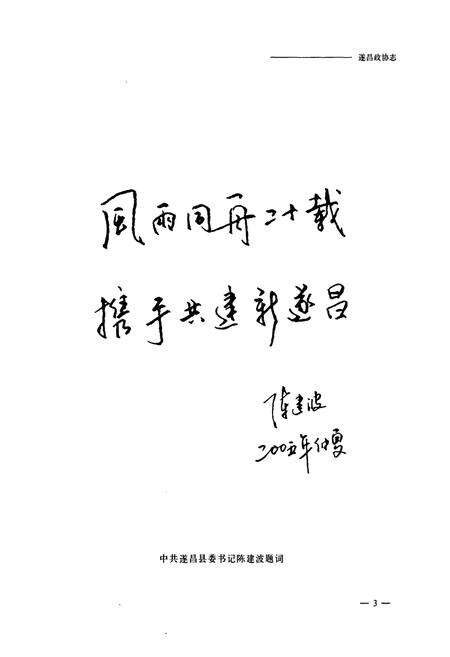 遂昌政协志
風雨同舟二十载
携手共建新遂昌
陈建波
二〇〇五年仲夏
中共遂昌县委书记陈建波题词
— 3 —